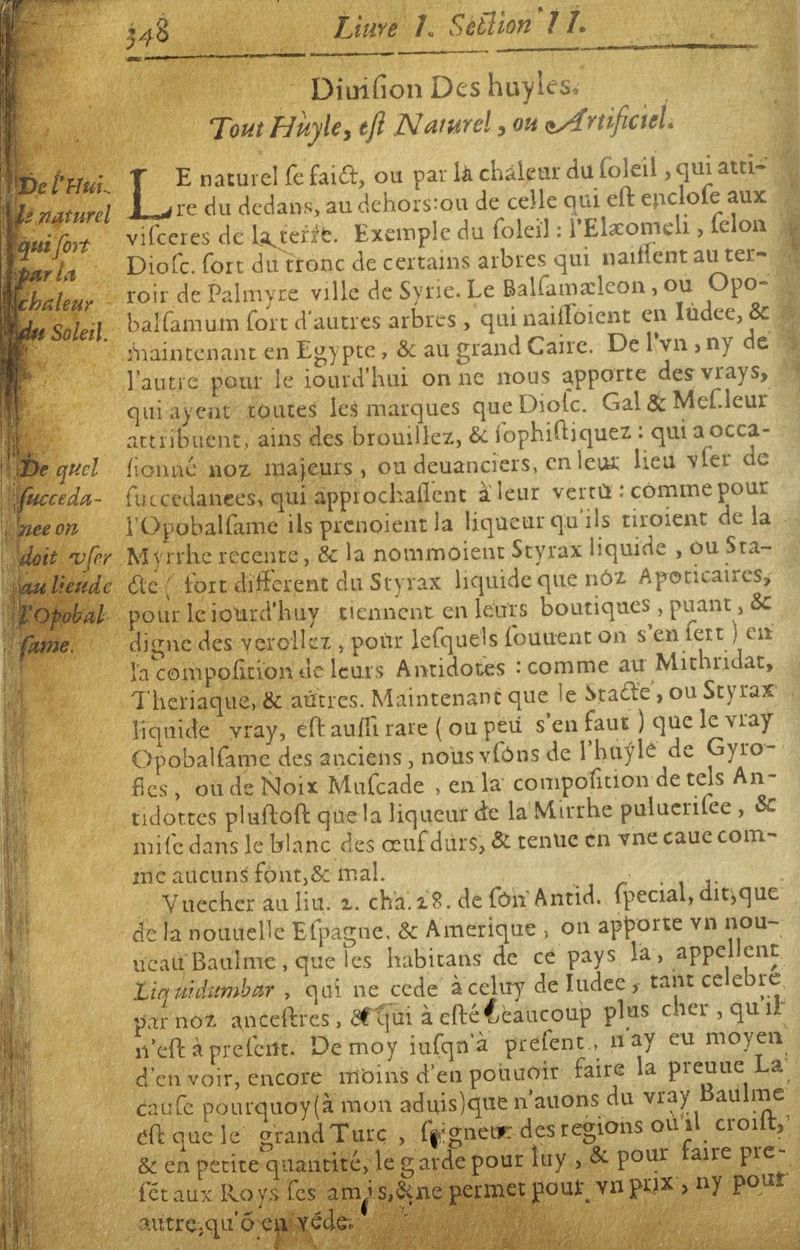 348
Liure I. Section II.
Diuiſion Des huyles.
Tout Huyle, eſt Naturel, ou Artificiel.
De l'Hui-
le naturel
qui ſort
par la
chaleur
du Soleil.
LE naturel ſe faict, ou par la chaleur du ſoleil, qui atti-
re du dedans, au dehors: ou de celle qui eſt encloſe aux
viſceres de la terre. Exemple du ſoleil: l'Elæomeli, ſelon
Dioſc. ſort du tronc de certains arbres qui naiſſent au ter-
roir de Palmyre ville de Syrie. Le Balſamæleon, ou Opo-
balſamum ſort d'autres arbres, qui naiſſoient en Iudee, &
maintenant en Egypte, & au grand Caire. De l'vn, ny de
l'autre pour le iourd'hui on ne nous apporte des vrays,
qui ayent toutes les marques que Dioſc. Gal & Meſ. leur
attribuent, ains des brouillez, & ſophiſtiquez: qui a occa-
ſionné noz majeurs, ou deuanciers, en leur lieu vſer de
ſuccedanees, qui approchaſſent à leur vertu: comme pour
l'Opobalſame ils prenoient la liqueur qu'ils tiroient de la
Myrrhe recente, & la nommoient Styrax liquide, ou Sta-
cte ( fort different du Styrax liquide que noz Apoticaires,
pour le iourd'huy tiennent en leurs boutiques, puant, &
digne des verollez, pour leſquels ſouuent on s'en ſert ) en
la compoſition de leurs Antidotes: comme au Mithridat,
Theriaque, & autres. Maintenant que le Stacte, ou Styrax
liquide vray, eſt auſſi rare ( ou peu s'en faut ) que le vray
Opobalſame des anciens, nous vſons de l'huyle de Gyro-
fles, ou de Noix Muſcade, en la compoſition de tels An-
tidottes pluſtoſt que la liqueur de la Mirrhe pulueriſee, &
miſe dans le blanc des œuf durs, & tenue en vne caue com-
me aucuns font, & mal.
De quel
ſucceda-
nee on
doit vſer
au lieu de
l'Opobal
ſame.
Vuecher au liu. 2. cha. 28. de ſon Antid. ſpecial, dit, que
de la nouuelle Eſpagne, & Amerique, on apporte vn nou-
ueau Baulme, que les habitans de ce pays la, appellent
Liquidumbar, qui ne cede à celuy de Iudee, tant celebré
par noz anceſtres, & qui à eſté beaucoup plus cher, qu'il
n'eſt à preſent. De moy iuſqn'à preſent, n'ay eu moyen
d'en voir, encore moins d'en pouuoir faire la preuue La
cauſe pourquoy (à mon aduis) que n'auons du vray Baulme
eſt que le grand Turc, ſeigneur des regions ou il croiſt,
& en petite quantité, le garde pour luy, & pour faire pre-
ſét aux Roys ſes amis, & ne permet pour vn prix, ny pour
autre, qu'ó en véde.